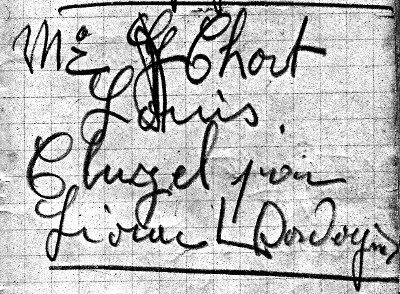 Mr Chort
Louis.
Cluzel par
Liorac Dordogne